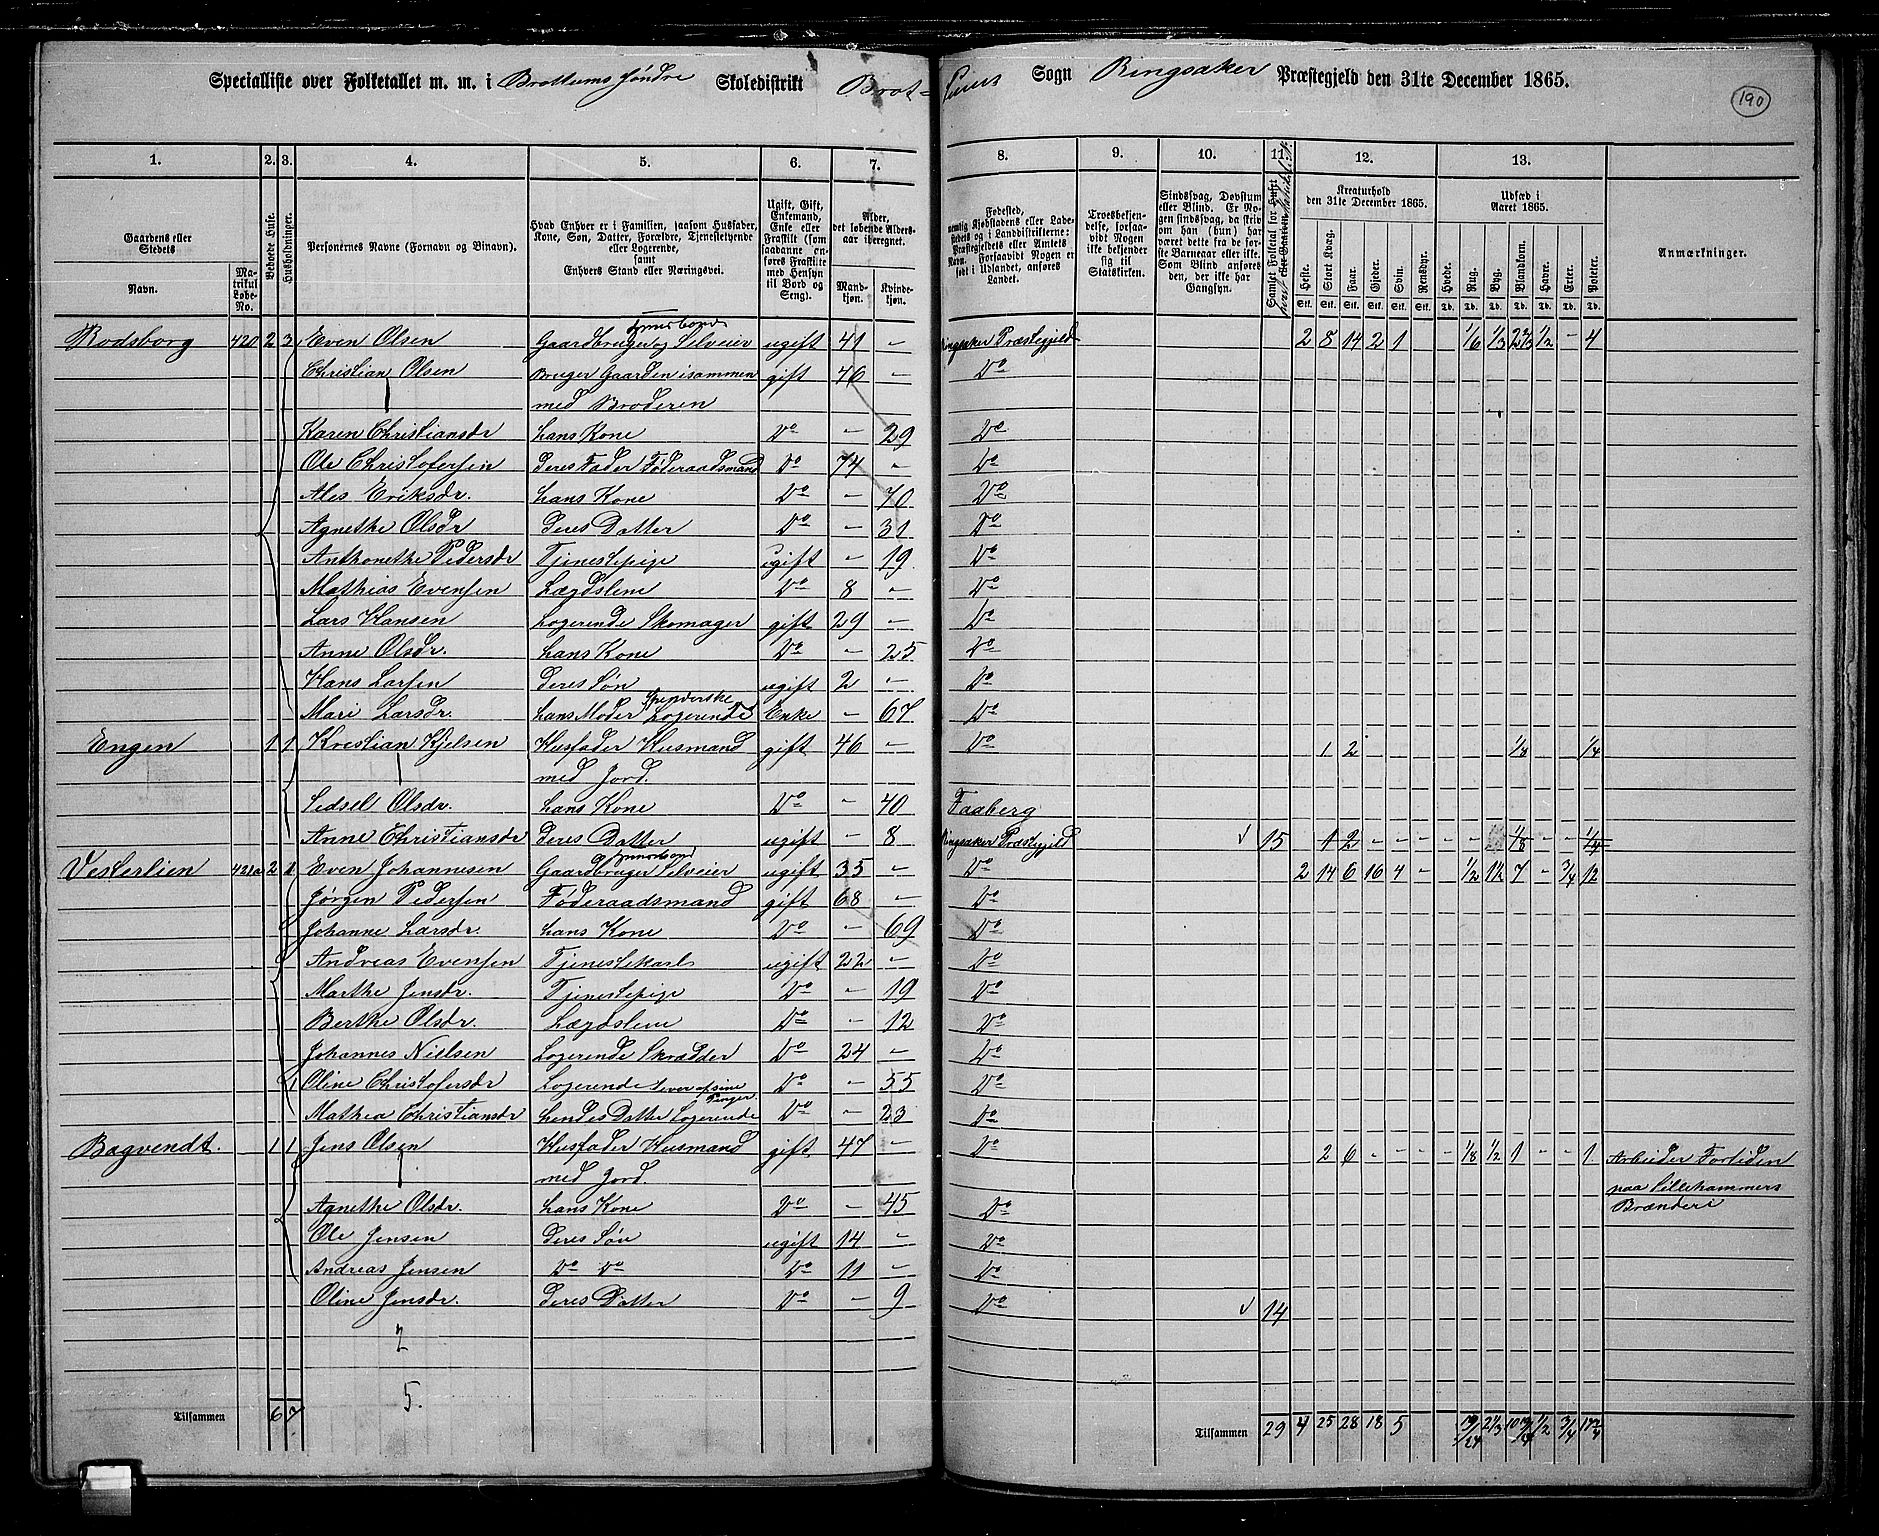 Specialliste over Folketallet m. m. i Brottums søndre Skoledistrikt Brot-tums Sogn Ringsaker Præstegjeld den 31te December 1865.
190
1. 2. 3. 4. 5. 6. 7. 8. 9. 10. 11. 12. 13.
Gaardens eller Stedets
Navn.
Matrikul Løbe-No.
Beboede Huse.
Husholdninger.
Personernes Navne (Fornavn og Binavn).
Hvad Enhver er i Familien, saasom Husfader, Kone, Søn, Datter, Forældre, Tjenestetyende eller Logerende, samt Enhvers Stand eller Næringsvei.
Ugift, Gift, Enkemand, Enke eller Fraskilt (som saadanne anføres Fraskilte med Hensyn til Bord og Seng).
Alder, det løbende Aldersaar iberegnet.
Mandkjøn. Kvindekjøn.
Fødested, nemlig Kjøbstadens eller Ladestedets og i Landdistrikterne: Præstegjeldets eller Amtets Navn. Forsaavidt Nogen er født i Udlandet, anføres Landet.
Troesbekjendelse, forsaavidt Nogen ikke bekjender sig til Statskirken.
Sindssvag, Døvstum eller Blind. Er Nogen sindssvag, da skrives om han (hun) har været dette fra de første Barneaar eller ikke. Som Blind anføres den, der ikke har Gangsyn.
Samlet Folketal for
Kreaturhold den 31te December 1865.
Heste. Stort Kvæg. Faar. Gjeder. Svin. Rensdyr.
Stk. Stk. Stk. Stk. Stk. Stk.
Udsæd i Aaret 1865.
Hvede. Rug. Byg. Blandkorn. Havre. Erter. Poteter.
Td. Td. Td. Td. Td. Td. Td.
Anmærkninger.
Rodsborg 420 2 3 Even Olsen Gaardbruger og Selveier ugift 41 - Ringsaker Præstegjeld 2 8 14 2 1 1/6 1/3 2 2/3 1/2 - 4
Christian Olsen Bruger Gaarden isammen gift 46 - Do
med Broderen
Karen Christiansdr hans Kone Do - 29 Do
Ole Christofersen Deres Fader Føderaadsmand Do 74 - Do
Ales Eriksdr. hans Kone Do - 70 Do
Agnethe Olsdr Deres Datter Do - 31 Do
Anthonethe Pedersdr Tjenestepige ugift - 19 Do
Mathias Evensen Lægdslem Do 8 - Do
Lars Hansen Logerende Skomager gift 29 - Do
Anne Olsdr. hans Kone Do - 25 Do
Hans Larsen Deres Søn ugift 2 - Do
Mari Larsdr. hans Moder Logerende Enke - 67 Do
Engen 1 1 Krestian Kjelsen Husfader Husmand gift 46 - Do 1 2 1/8 1/4
med Jord.
Sedsel Olsdr. hans Kone Do - 40 Faaberg
Anne Christiansdr Deres Datter ugift - 8 Ringsaker Præstegjeld 15 1 2 - - - - - 1/8 - - 1/4
Vesterlien 421a 2 1 Even Johannesen Gaardbruger Selveier ugift 35 - Do 2 14 6 16 4 - 1/2 1 1/2 7 - 3/4 12
Jørgen Pedersen Føderaadsmand gift 68 - Do
Johanne Larsdr. hans Kone Do - 69 Do
Andreas Evensen Tjenestekarl ugift 22 - Do
Marthe Jensdr. Tjenestepige Do - 19 Do
Berthe Olsdr. Lægdslem Do - 12 Do
Johannes Nielsen Logerende Skrædder Do 24 - Do
1 Oline Christofersdr Logerende lever af sine Penger. Do - 55 Do
Mathea Christiansdr hendes Datter Logerende Do - 23 Do
Bagvendt. 1 1 Jens Olsen Husfader Husmand gift 47 - Do 2 6 - - - - 1/8 1/2 1 - - 1 Arbeider Fortiden
med Jord. paa Lillehammers
Agnethe Olsdr. hans Kone Do - 45 Do Brænderi
Ole Jensen Deres Søn ugift 14 - Do
Andreas Jensen Do Do Do 11 - Do
Oline Jensdr. Deres Datter Do - 9 Do 14
2
5.
Tilsammen 6 7 Tilsammen 29 4 25 28 18 5 19/24 2 1/3 1/2 3/4